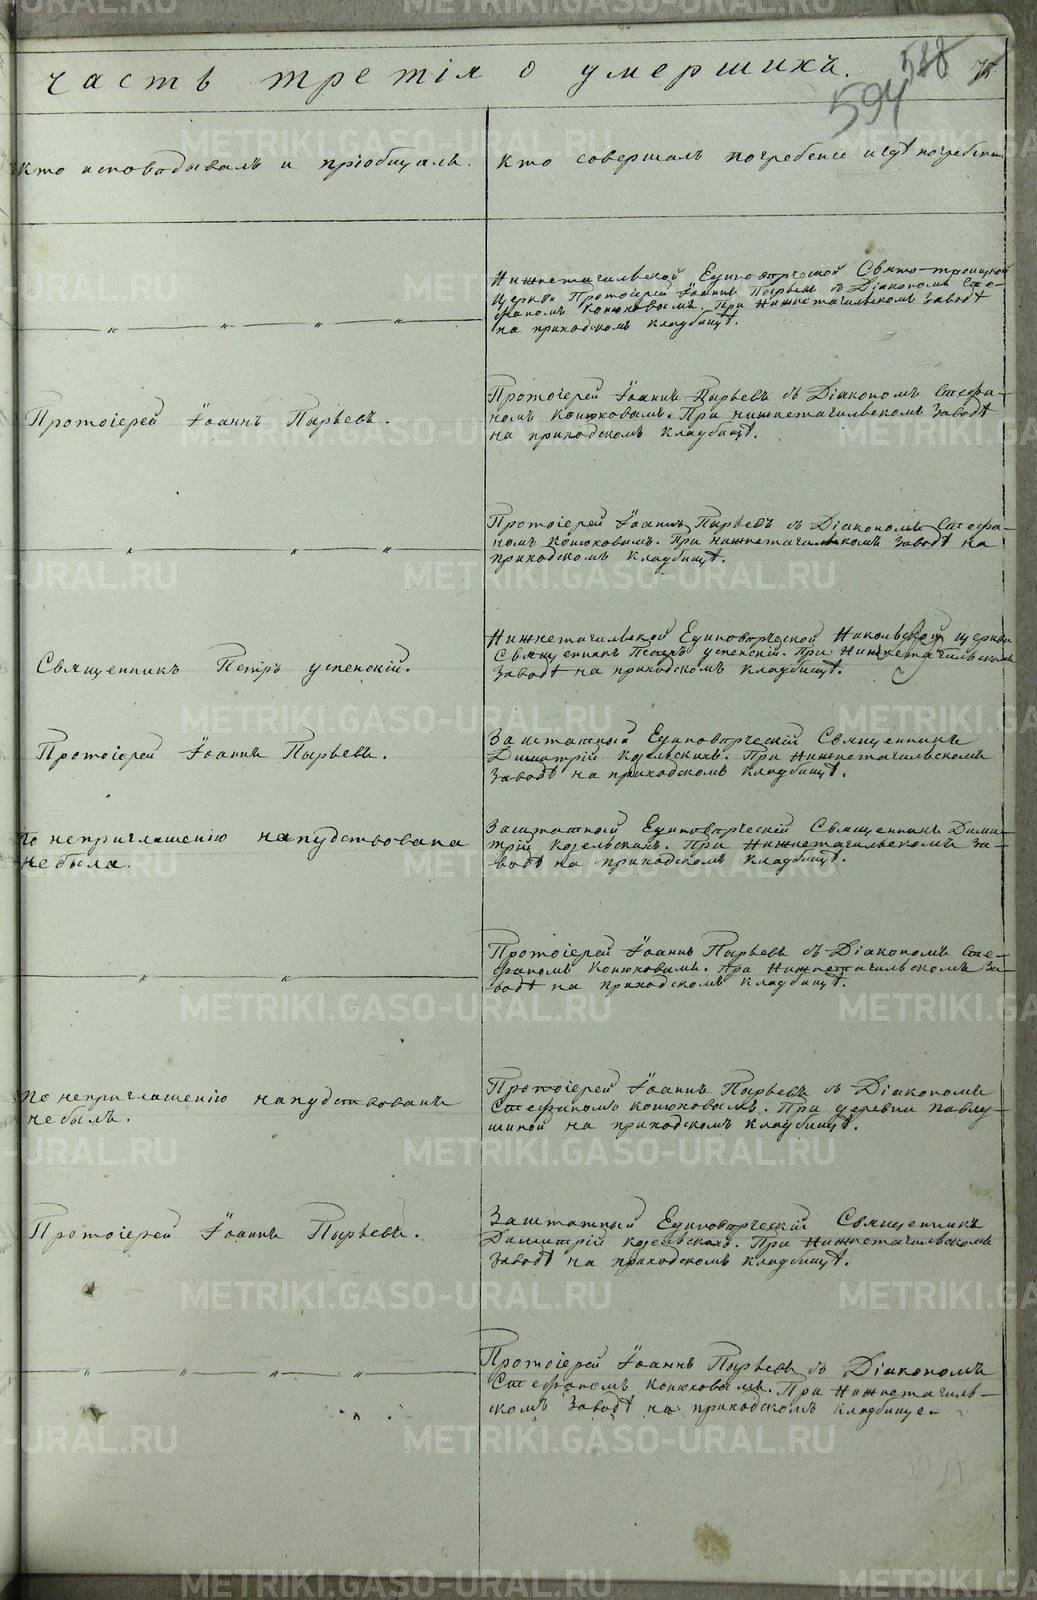 часть третія о умершихъ.
588
594
75
Кто исповѣдывалъ и пріобщалъ.
Кто совершалъ погребеніе и гдѣ погребены
Нижнетагильской Единовѣрческой Свято-троицкой
Церкви Протоіерей Іоаннъ Пырьевъ съ Діакономъ Сте-
фаномъ Конюховымъ. При Нижнетагильскомъ Заводѣ
на приходскомъ кладбищѣ.
Протоіерей Іоаннъ Пырьевъ.
Протоіерей Іоаннъ Пырьевъ съ Діакономъ Стефа-
номъ Конюховымъ. При нижнетагильскомъ Заводѣ
на приходскомъ кладбищѣ.
Протоіерей Іоаннъ Пырьевъ съ Діакономъ Стефа-
номъ Конюховымъ. При нижнетагильскомъ Заводѣ на
приходскомъ кладбищѣ.
Священникъ Петръ успенскій.
Нижнетагильской Единовѣрческой Никольской церкви
Священникъ Петръ успенскій. При Нижнетагильскомъ
Заводѣ на приходскомъ кладбищѣ.
Протоіерей Іоаннъ Пырьевъ.
Заштатный Единовѣрческій Священникъ
Димитрій Козельскихъ. При Нижнетагильскомъ
Заводѣ на приходскомъ кладбищѣ.
По неприглашенію напудствована
не была.
Заштатный Единовѣрческій Священникъ Дими-
трій Козельскихъ. При Нижнетагильскомъ За-
водѣ на приходскомъ кладбищѣ.
Протоіерей Іоаннъ Пырьевъ съ Діакономъ Сте-
фаномъ Конюховымъ. При Нижнетагильскомъ За-
водѣ на приходскомъ кладбищѣ.
По неприглашенію напудствованъ
не былъ.
Протоіерей Іоаннъ Пырьевъ съ Діакономъ
Стефаномъ Конюховымъ. При деревни Павлу-
шиной на приходскомъ кладбищѣ.
Протоіерей Іоаннъ Пырьевъ.
Заштатный Единовѣрческій Священникъ
Димитрій Козельскихъ. При Нижнетагильскомъ
Заводѣ на приходскомъ кладбищѣ.
Протоіерей Іоаннъ Пырьевъ съ Діакономъ
Стефаномъ Конюховымъ. При Нижнетагиль-
скомъ Заводѣ на приходскомъ кладбище.
METRIKI.GASO-URAL.RU